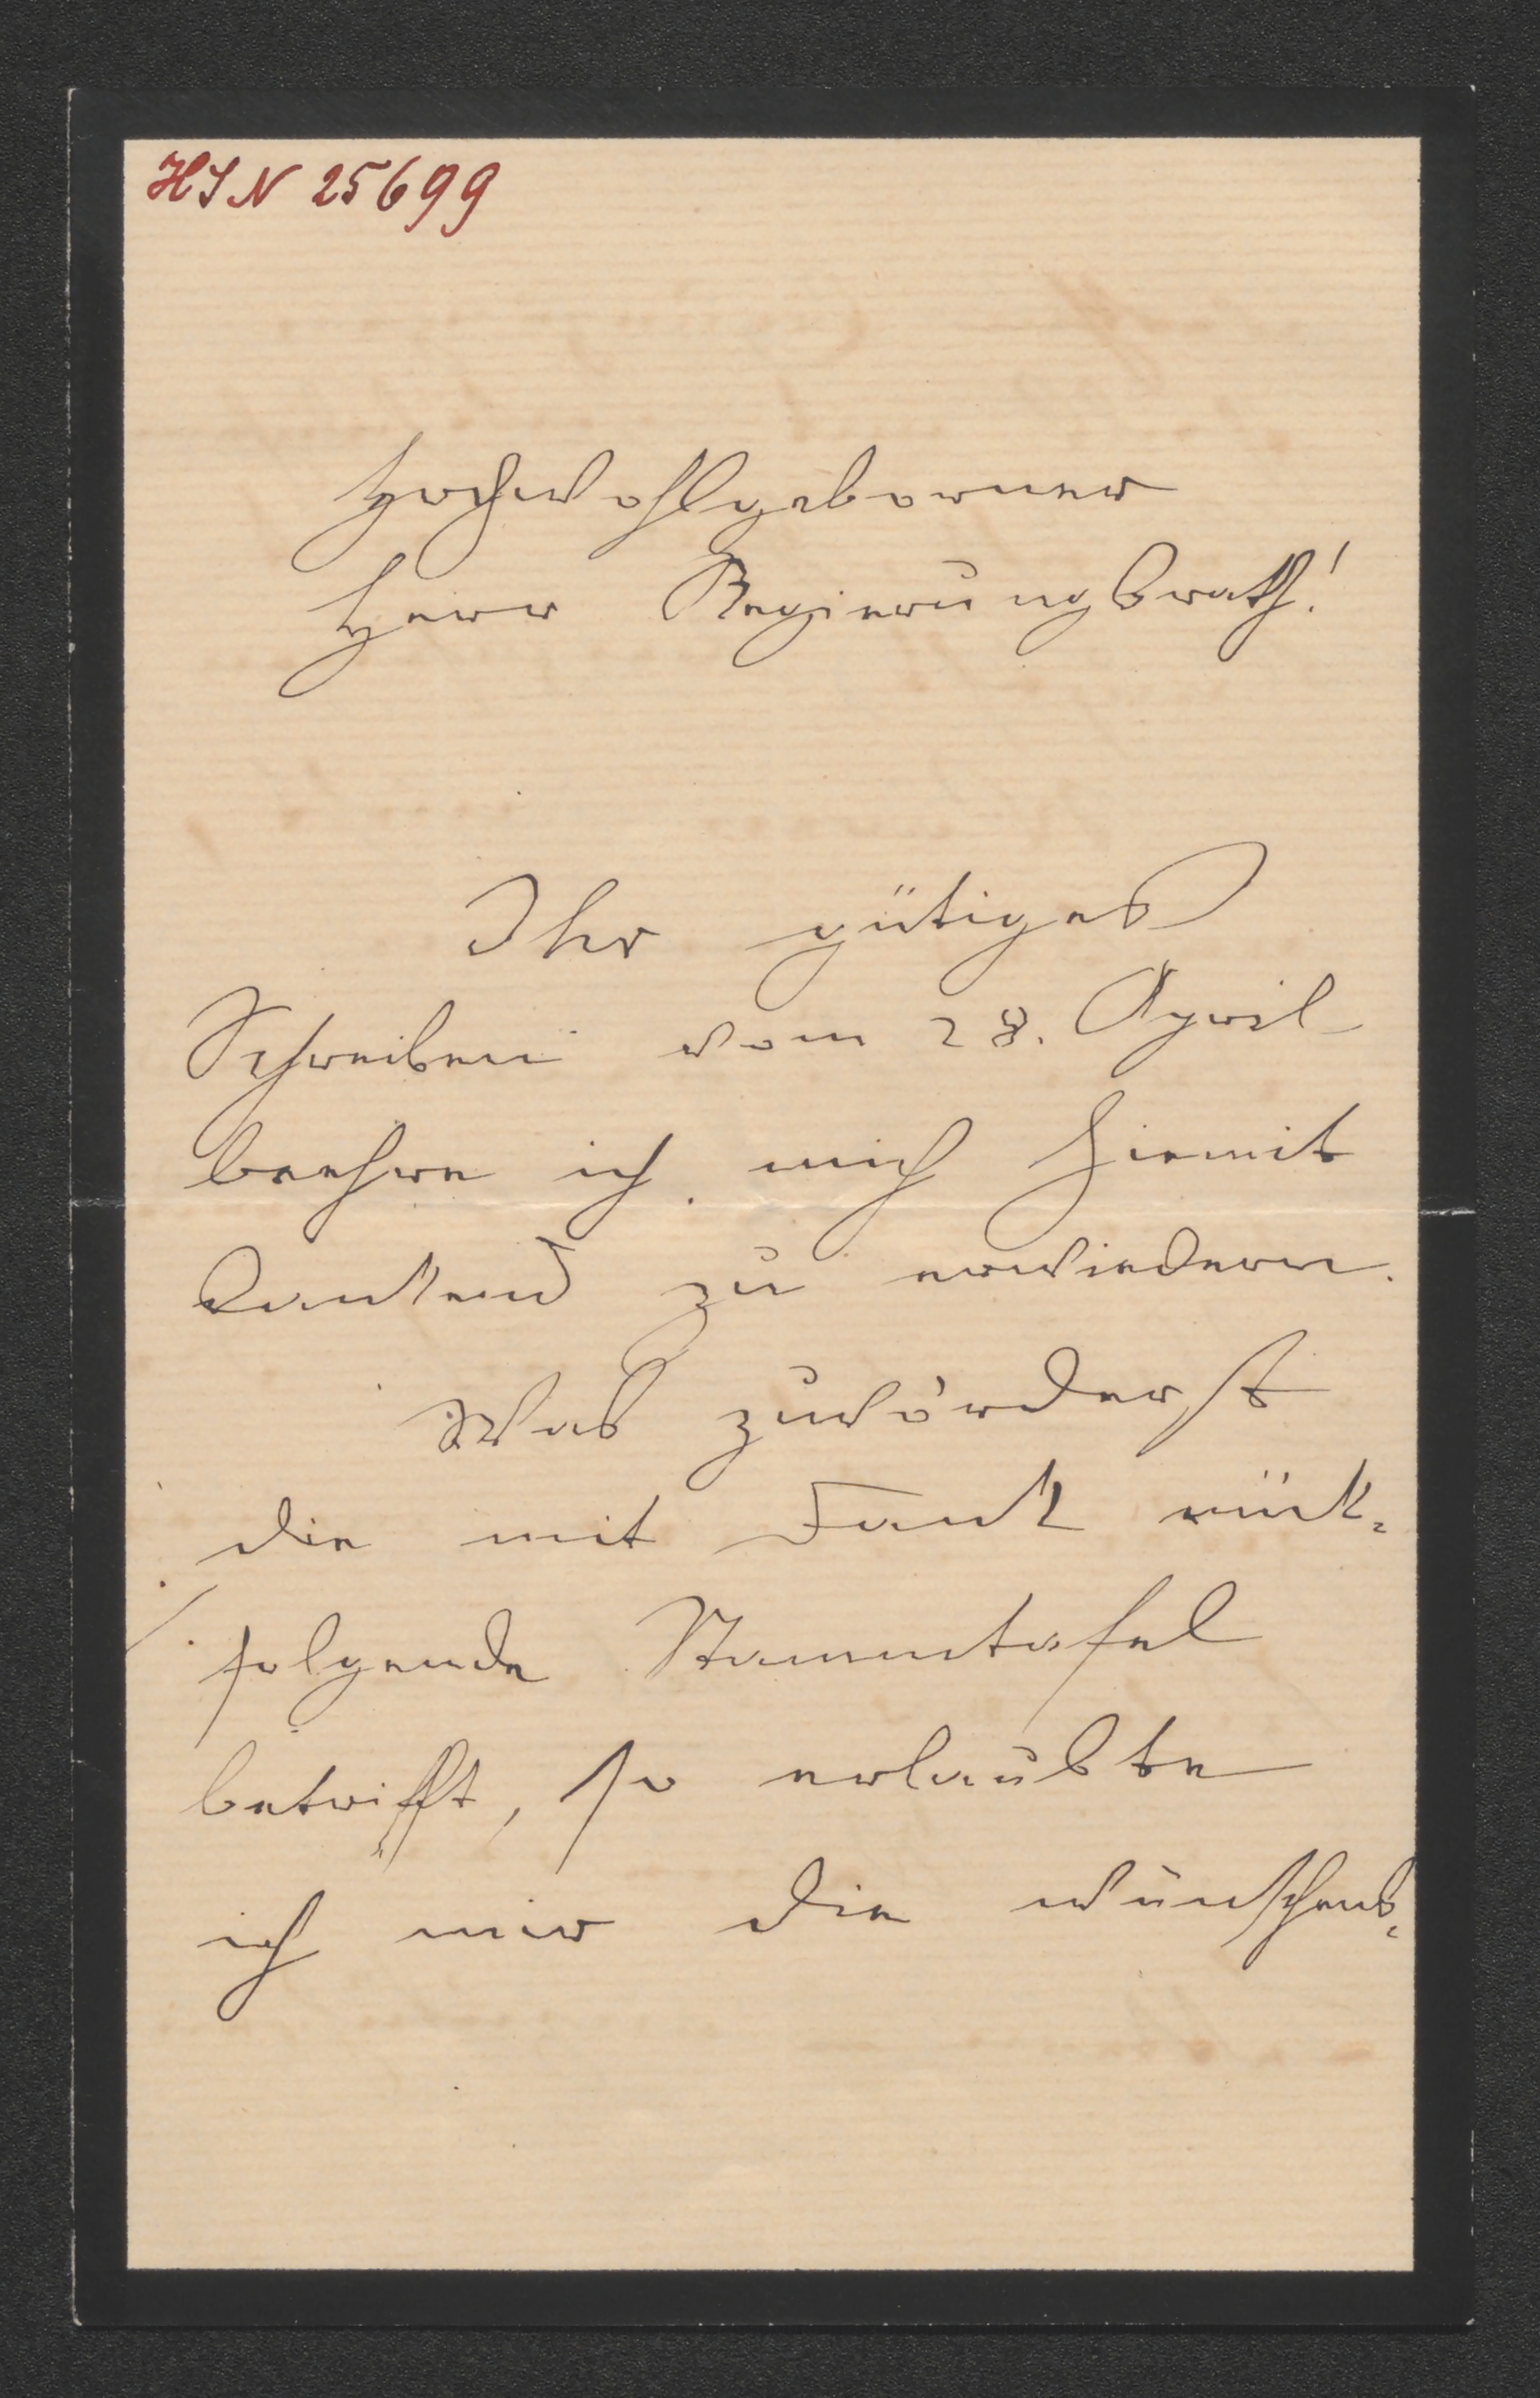 HIN 25699
Hochwohlgeborner
Herr Regierungsrath!
Ihr gütiges
Schreiben vom 28. April
beehre ich mich hiemit
dankend zu erwiedern.
Was zuvörderst
die mit Dank rück-
folgende Stammtafel
betrifft, so erlaubte
ich mir die wünschens-